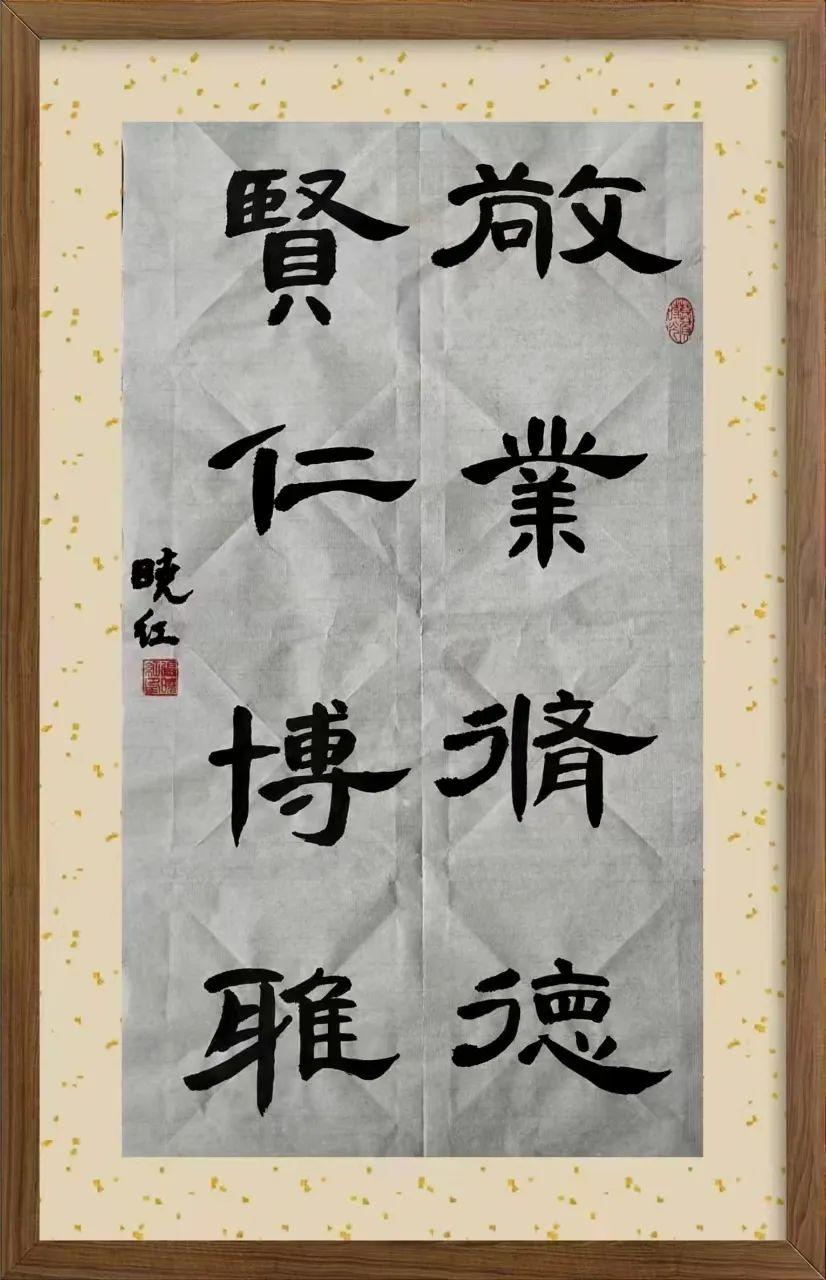 敬業脩德
賢仁博雅
曉红